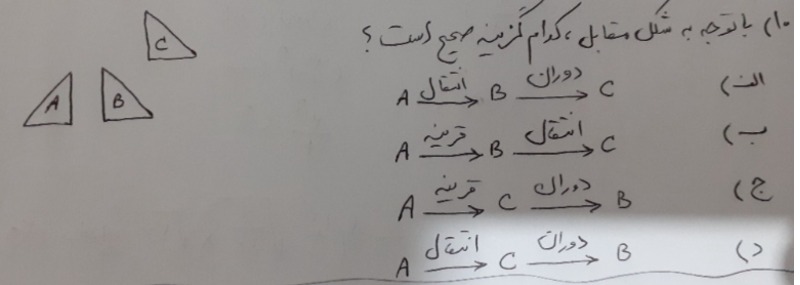 ۱۰) با توجه به شکل مقابل، کدام گزینه صحیح است؟
الف) A انتقال→ B دوران→ C
ب) A قرینه→ B انتقال→ C
ج) A قرینه→ C دوران→ B
د) A انتقال→ C دوران→ B
C
A B